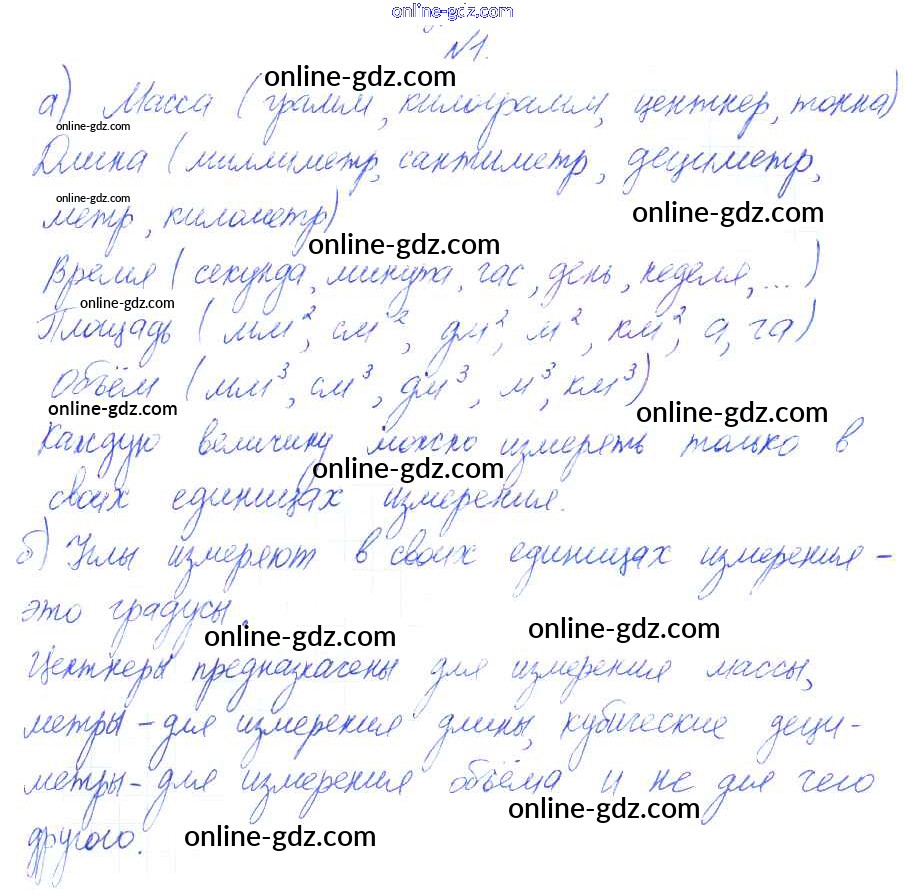 online-gdz.com
№1.
online-gdz.com
а) Масса (грамм, килограмм, центнер, тонна)
online-gdz.com
Длина (миллиметр, сантиметр, дециметр,
online-gdz.com
метр, километр)
online-gdz.com
online-gdz.com
Время (секунда, минута, час, день, неделя, ...)
online-gdz.com
Площадь (мм², см², дм², м², км², а, га)
Объём (мм³, см³, дм³, м³, км³)
online-gdz.com
online-gdz.com
Каждую величину можно измереть только в
online-gdz.com
своих единицах измерения.
б) Углы измеряют в своих единицах измерения -
это градусы.
online-gdz.com
online-gdz.com
Центнеры предназначены для измерения массы,
метры - для измерения длины, кубические деци-
метры - для измерения объёма и не для чего
online-gdz.com
другого.
online-gdz.com
online-gdz.com